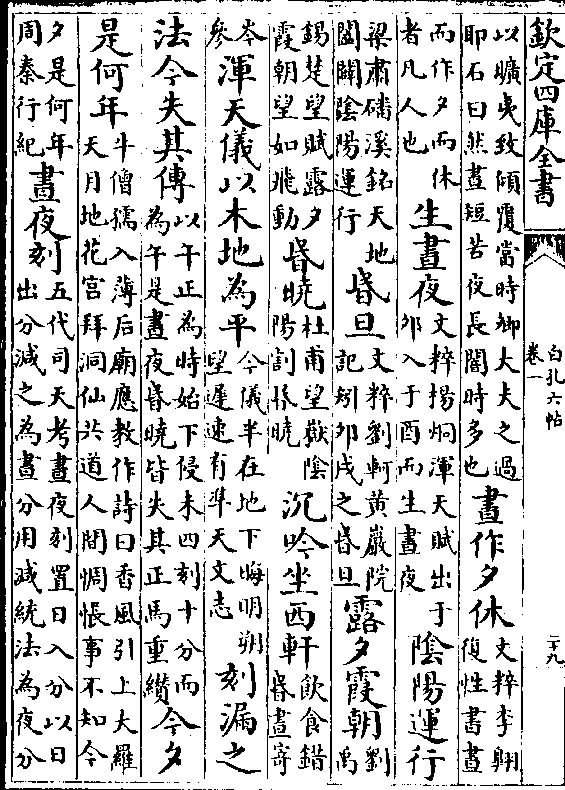 欽定四庫全書
白孔六帖
卷一
二十九
以曠夷致傾覆當時卿大夫之過
耶石曰然晝短苦夜長闇時多也
晝作夕休
文粹李翺
復性書晝
而作夕而休
者凡人也
生晝夜
文粹揚炯渾天賦出于
夘入于酉而生晝夜
陰陽運行
梁肅磻溪銘天地
闔闢陰陽運行
昏旦
文粹劉軻黄巖院
記矧夘戌之昏旦
露夕霞朝
劉
禹
錫楚望賦露夕
霞朝望如飛動
昏曉
杜甫望嶽陰
陽割昏曉
沉吟坐西軒
飲食錯
昏晝寄
岑
參
渾天儀以木地為平
今儀半在地下晦明朔
望遲速有準天文志
刻漏之
法今失其傳
以午正為時始下侵未四刻十分而
為午是晝夜昏曉皆失其正馬重績
今夕
是何年
牛僧孺入薄后廟應教作詩曰香風引上大羅
天月地花宫拜洞仙共道人間惆悵事不知今
夕是何年
周秦行紀
晝夜刻
五代司天考晝夜刻置日入分以日
出分減之為晝分用減統法為夜分